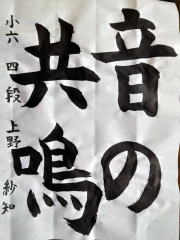 音の
共鳴
小六 四段 上野 紗知